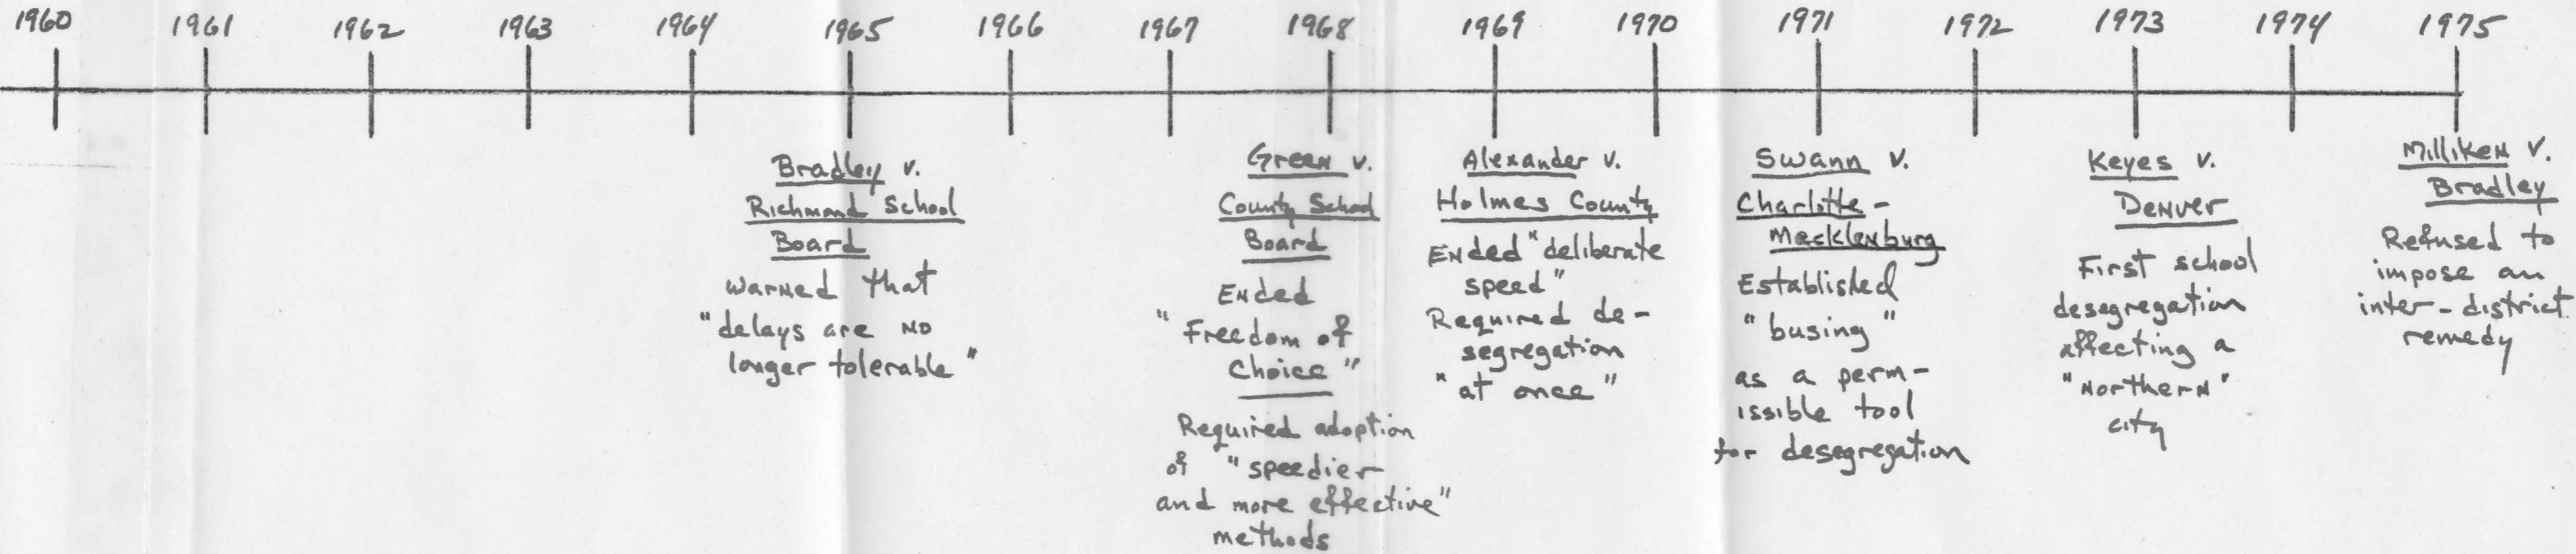 1960 1961 1962 1963 1964 1965 1966 1967 1968 1969 1970 1971 1972 1973 1974 1975
Bradley v.
Richmond School
Board
warned that
"delays are no
longer tolerable"
Green v.
County School
Board
Ended
"Freedom of
Choice"
Required adoption
of "speedier
and more effective"
methods
Alexander v.
Holmes County
Ended "deliberate
speed"
Required de-
segregation
"at once"
Swann v.
Charlotte-
Mecklenburg
Established
"busing"
as a perm-
issible tool
for desegregation
Keyes v.
Denver
First school
desegregation
affecting a
"Northern"
city
Milliken v.
Bradley
Refused to
impose an
inter-district
remedy